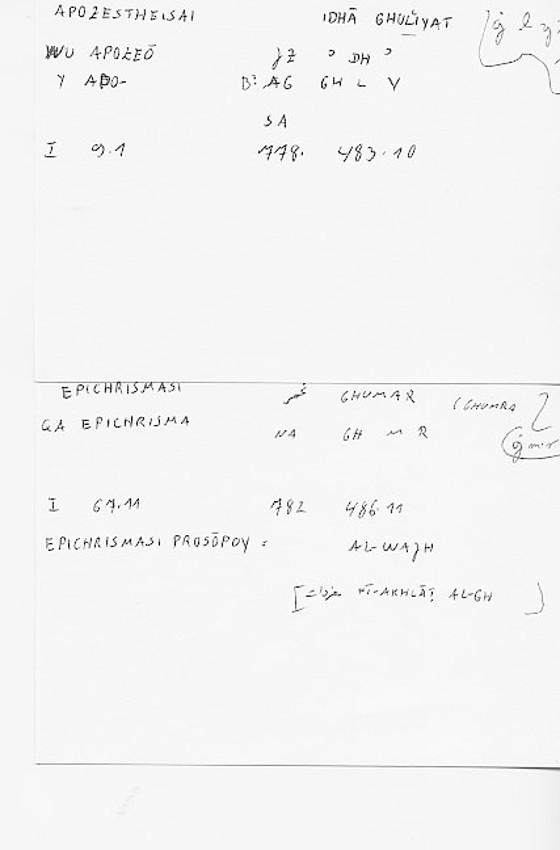 APOZESTHEISAI IDHĀ GHULIYAT
WU APOZEŌ JZ ʾ DH ʾ
Y APO- B: AG GH L Y
SA
I 9.1 778. 483.10
EPICHRISMASI GHUMAR (GHUMRA
QA EPICHRISMA NA GH M R ġmr
I 67.11 782 486.11
EPICHRISMASI PROSŌPOY = AL-WAJH
FĪ-AKHLĀṬ AL-GH